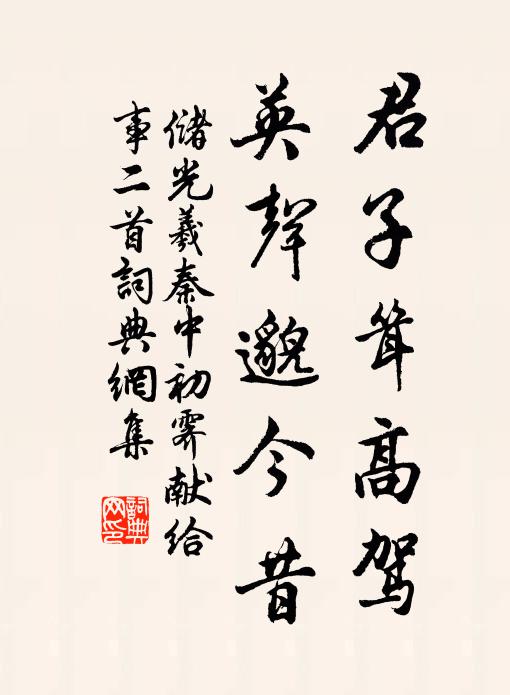 君子耸高駕
英聲邈今昔
儲光羲秦中初霽献給
事二首詞典網集
詞典
网印